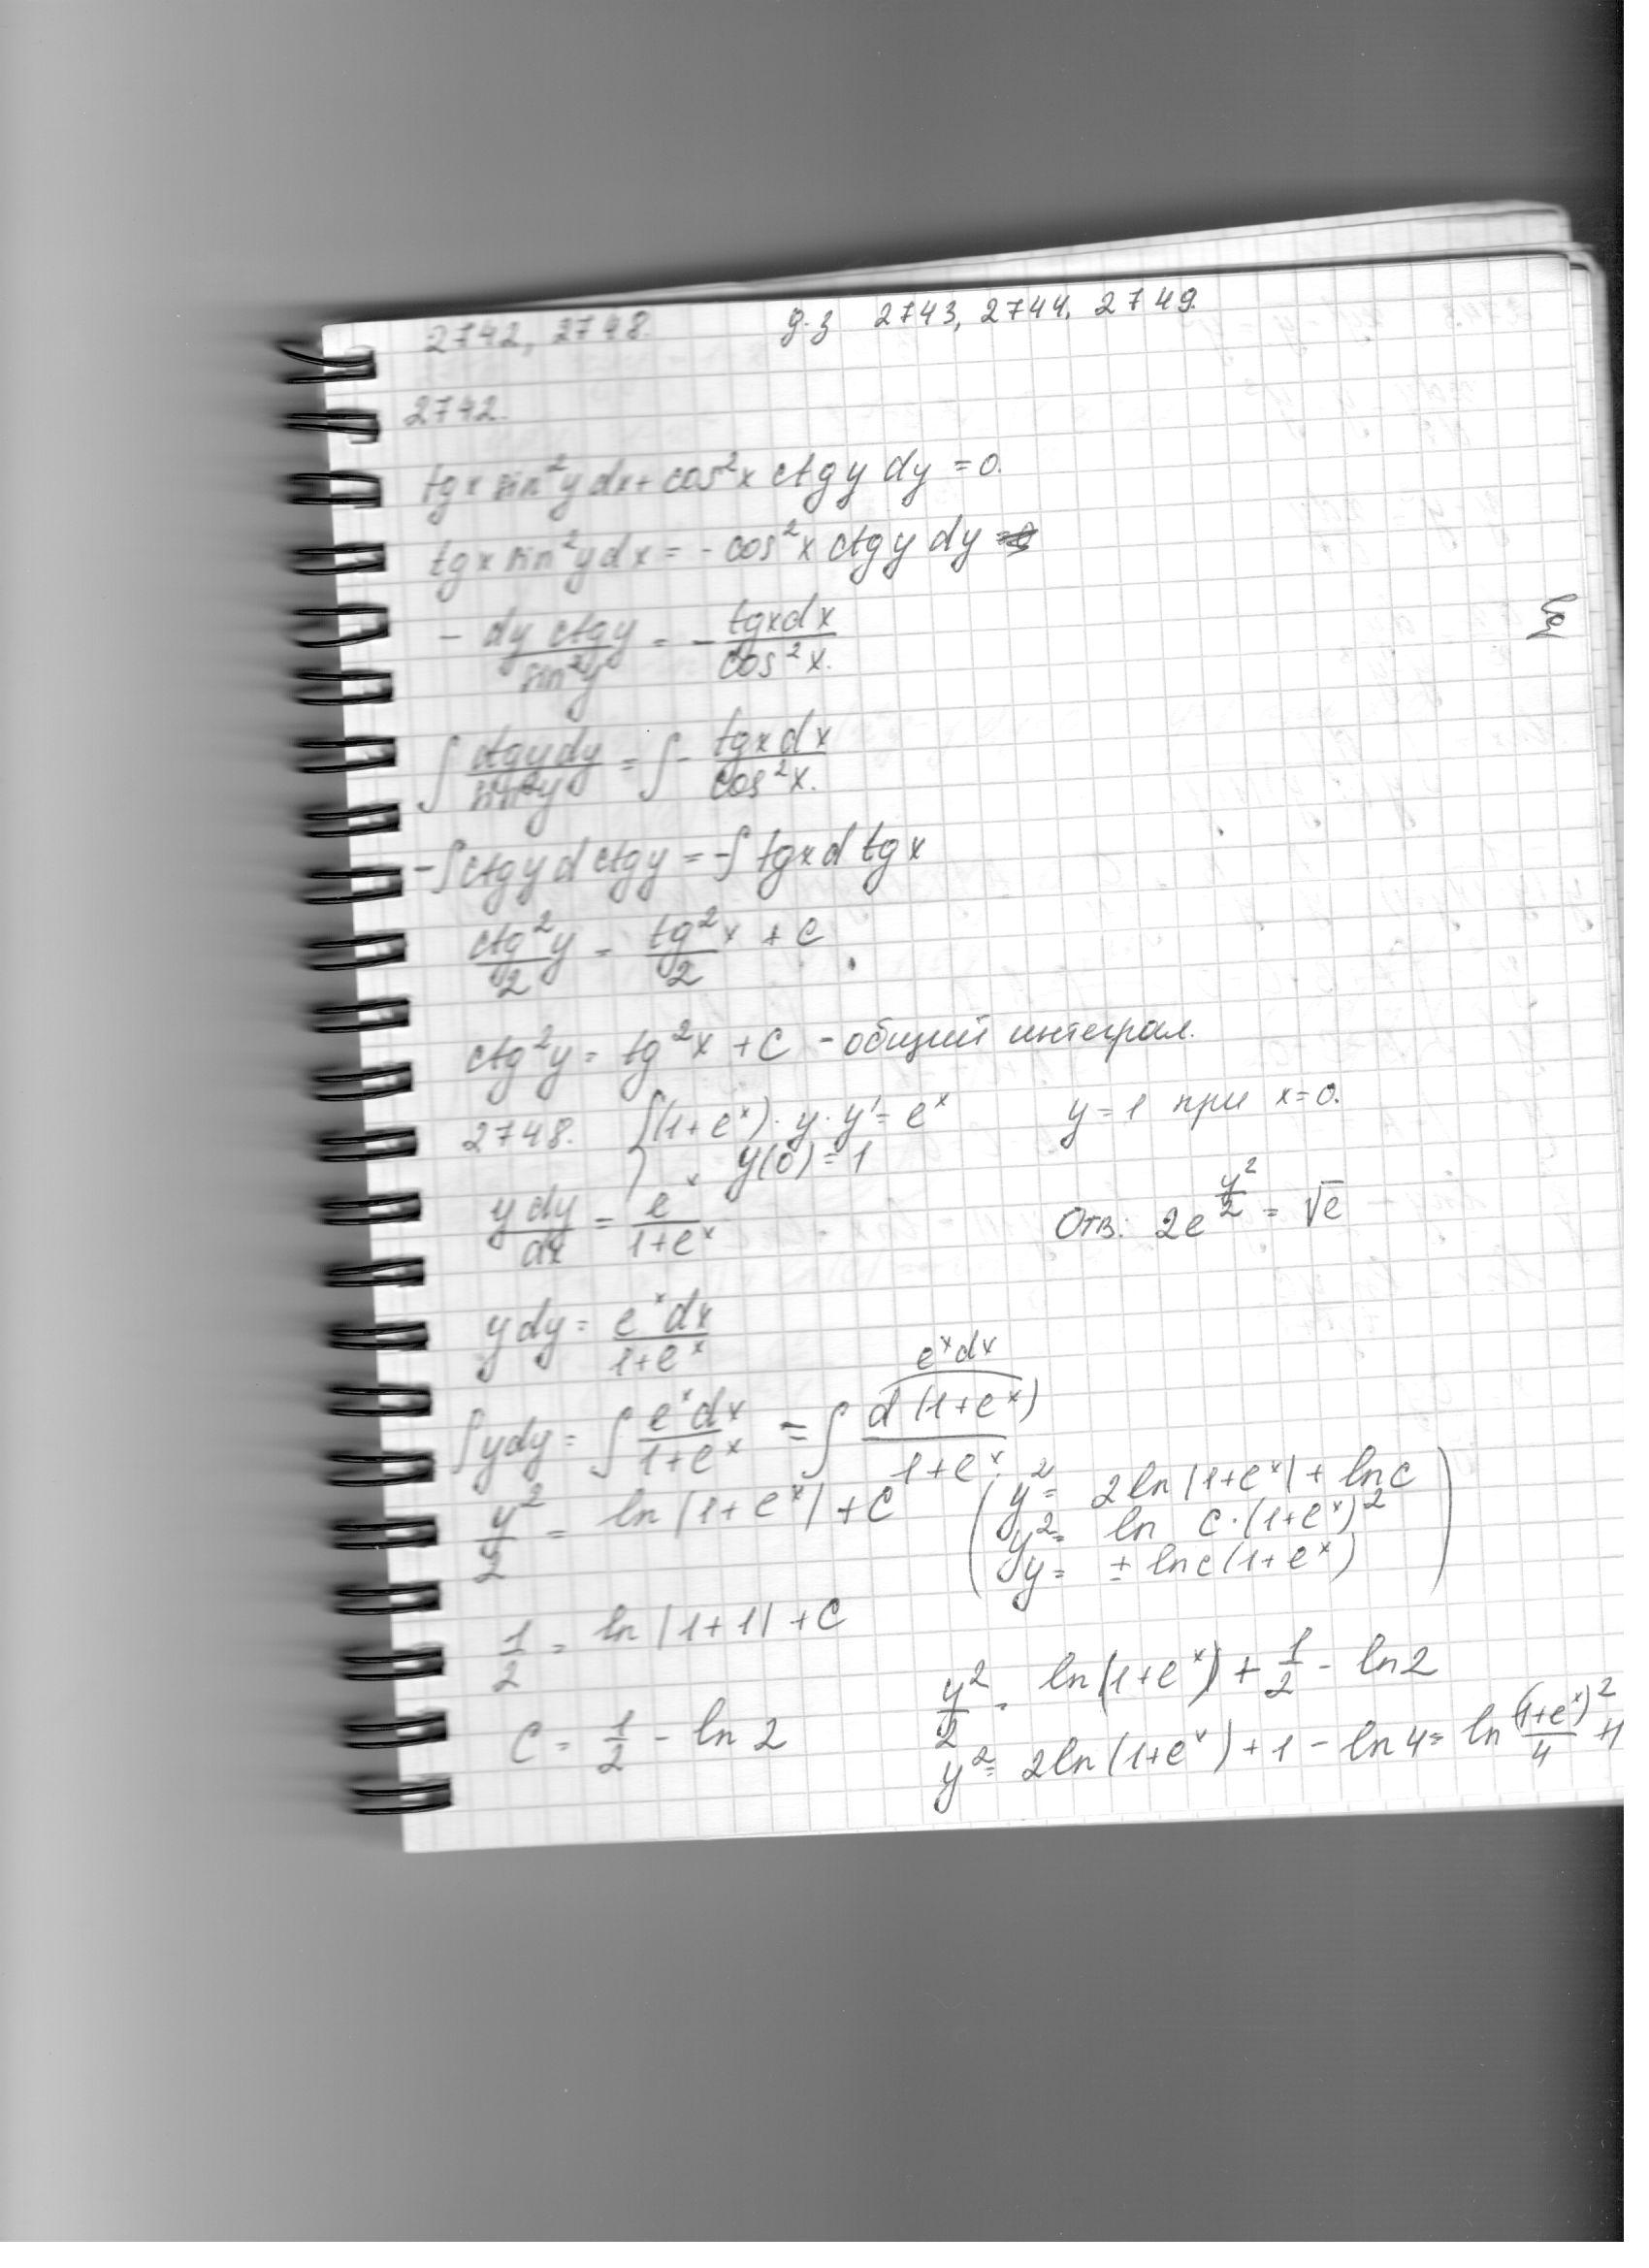 2742, 2748. д.з 2743, 2744, 2749.
2742.
tgx sin²y dx + cos²x ctgy dy = 0.
tgx sin²y dx = - cos²x ctgy dy
- dy ctgy / sin²y = - tgx dx / cos²x.
∫ ctgy dy / sin²y = ∫ - tgx dx / cos²x.
-∫ctgy d ctgy = -∫ tgx d tgx
ctg²y / 2 = tg²x / 2 + C
ctg²y = tg²x + C - общий интеграл.
2748. {(1+eˣ)·y·y' = eˣ y = 1 при x=0.
y(0) = 1
y dy / dx = eˣ / 1+eˣ Отв: 2e^(y²/2) = √e
y dy = eˣdx / 1+eˣ
eˣdx
∫ydy = ∫ eˣdx / 1+eˣ = ∫ d(1+eˣ) / 1+eˣ
y²/2 = ln|1+eˣ| + C
(y² = 2ln|1+eˣ| + lnc
y² = ln c·(1+eˣ)²
y = ± lnc(1+eˣ))
1/2 = ln|1+1| + C
C = 1/2 - ln 2
y²/2 = ln(1+eˣ) + 1/2 - ln2
y² = 2ln(1+eˣ) + 1 - ln4 = ln (1+eˣ)²/4 +1